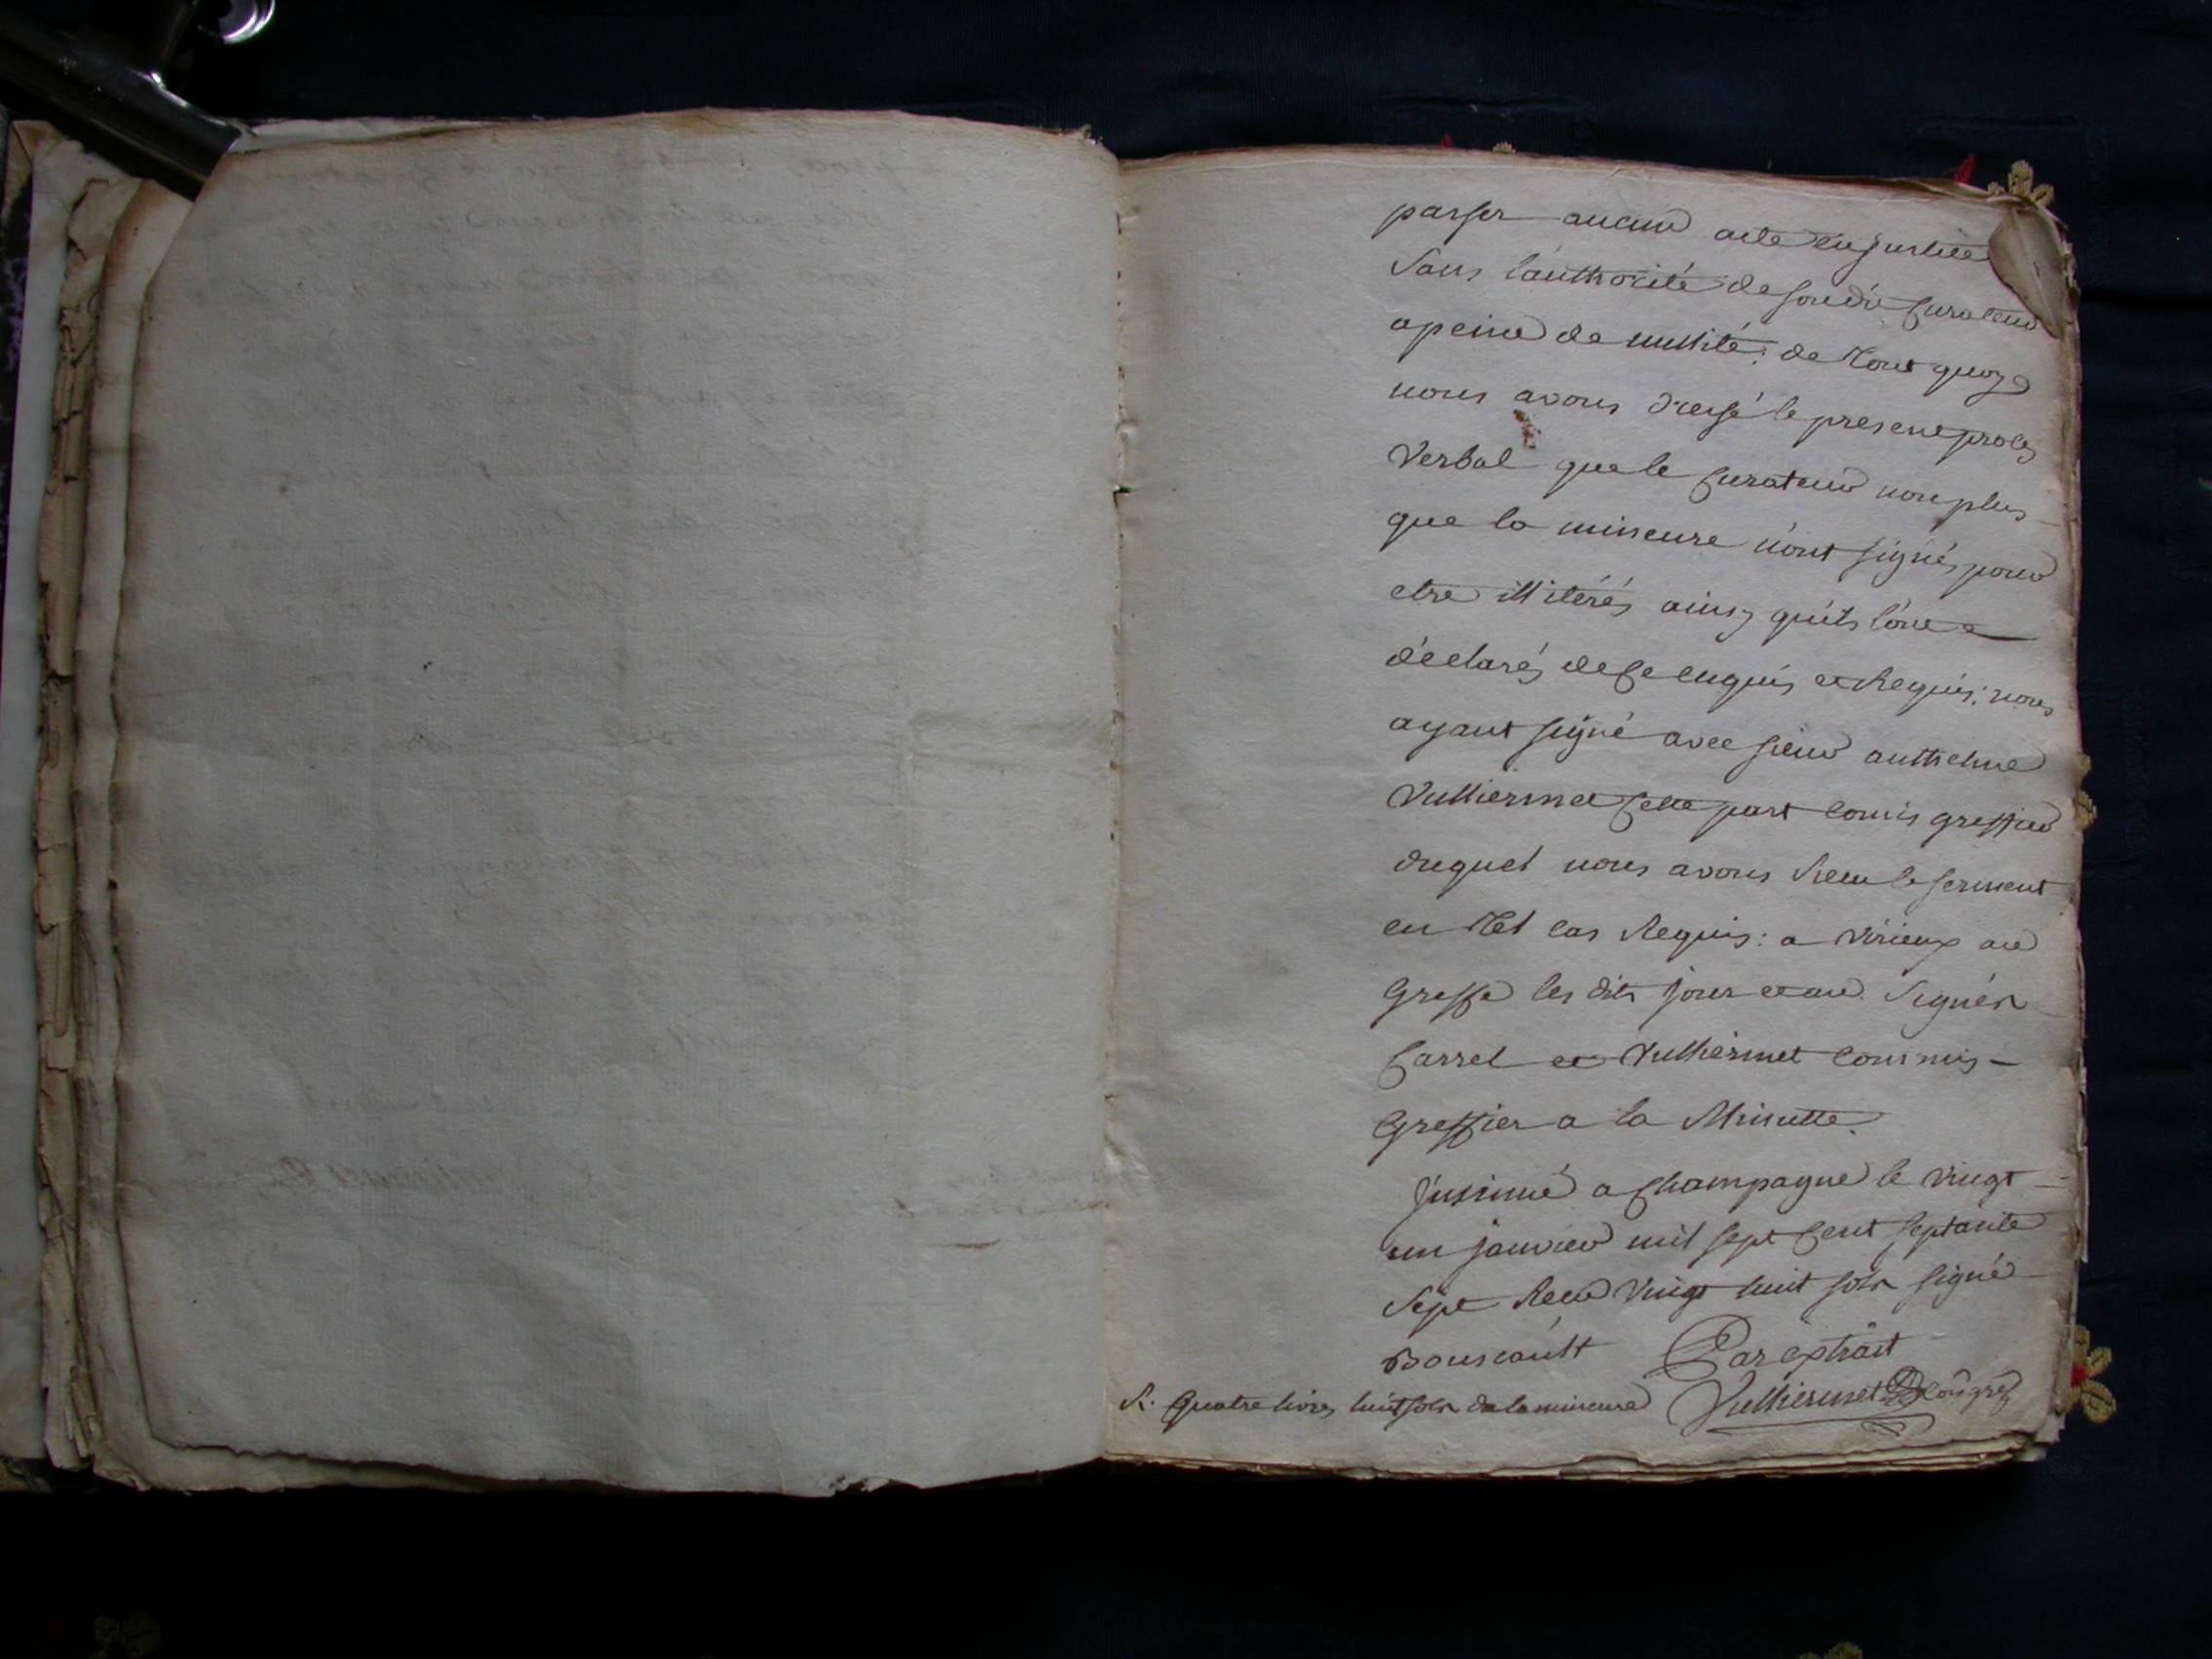 passer aucun acte en justice
sans l'authorité de son dit Curateur
a peine de nullité; de tout quoy
nous avons dressé le present proces
Verbal que le Curateur non plus
que la mineure n'ont signés pour
etre illitérés ainsy qu'ils l'ont
déclarés de Ce enquis et Requis; nous
ayant signé avec sieur anthelme
Vulliermet Cette part comis greffier
duquel nous avons Receu le serment
en tel cas Requis: a Virieux au
Greffe les dits jour et an. Signés
Carrel et Vulliermet commis
Greffier a la Minutte.
Insinué a Champagne le vingt
un janvier mil sept Cent septante
Sept Receu Vingt huit sols signé
Bouscault Par extrait
R. Quatre livres huit sols de la mineure Vulliermet